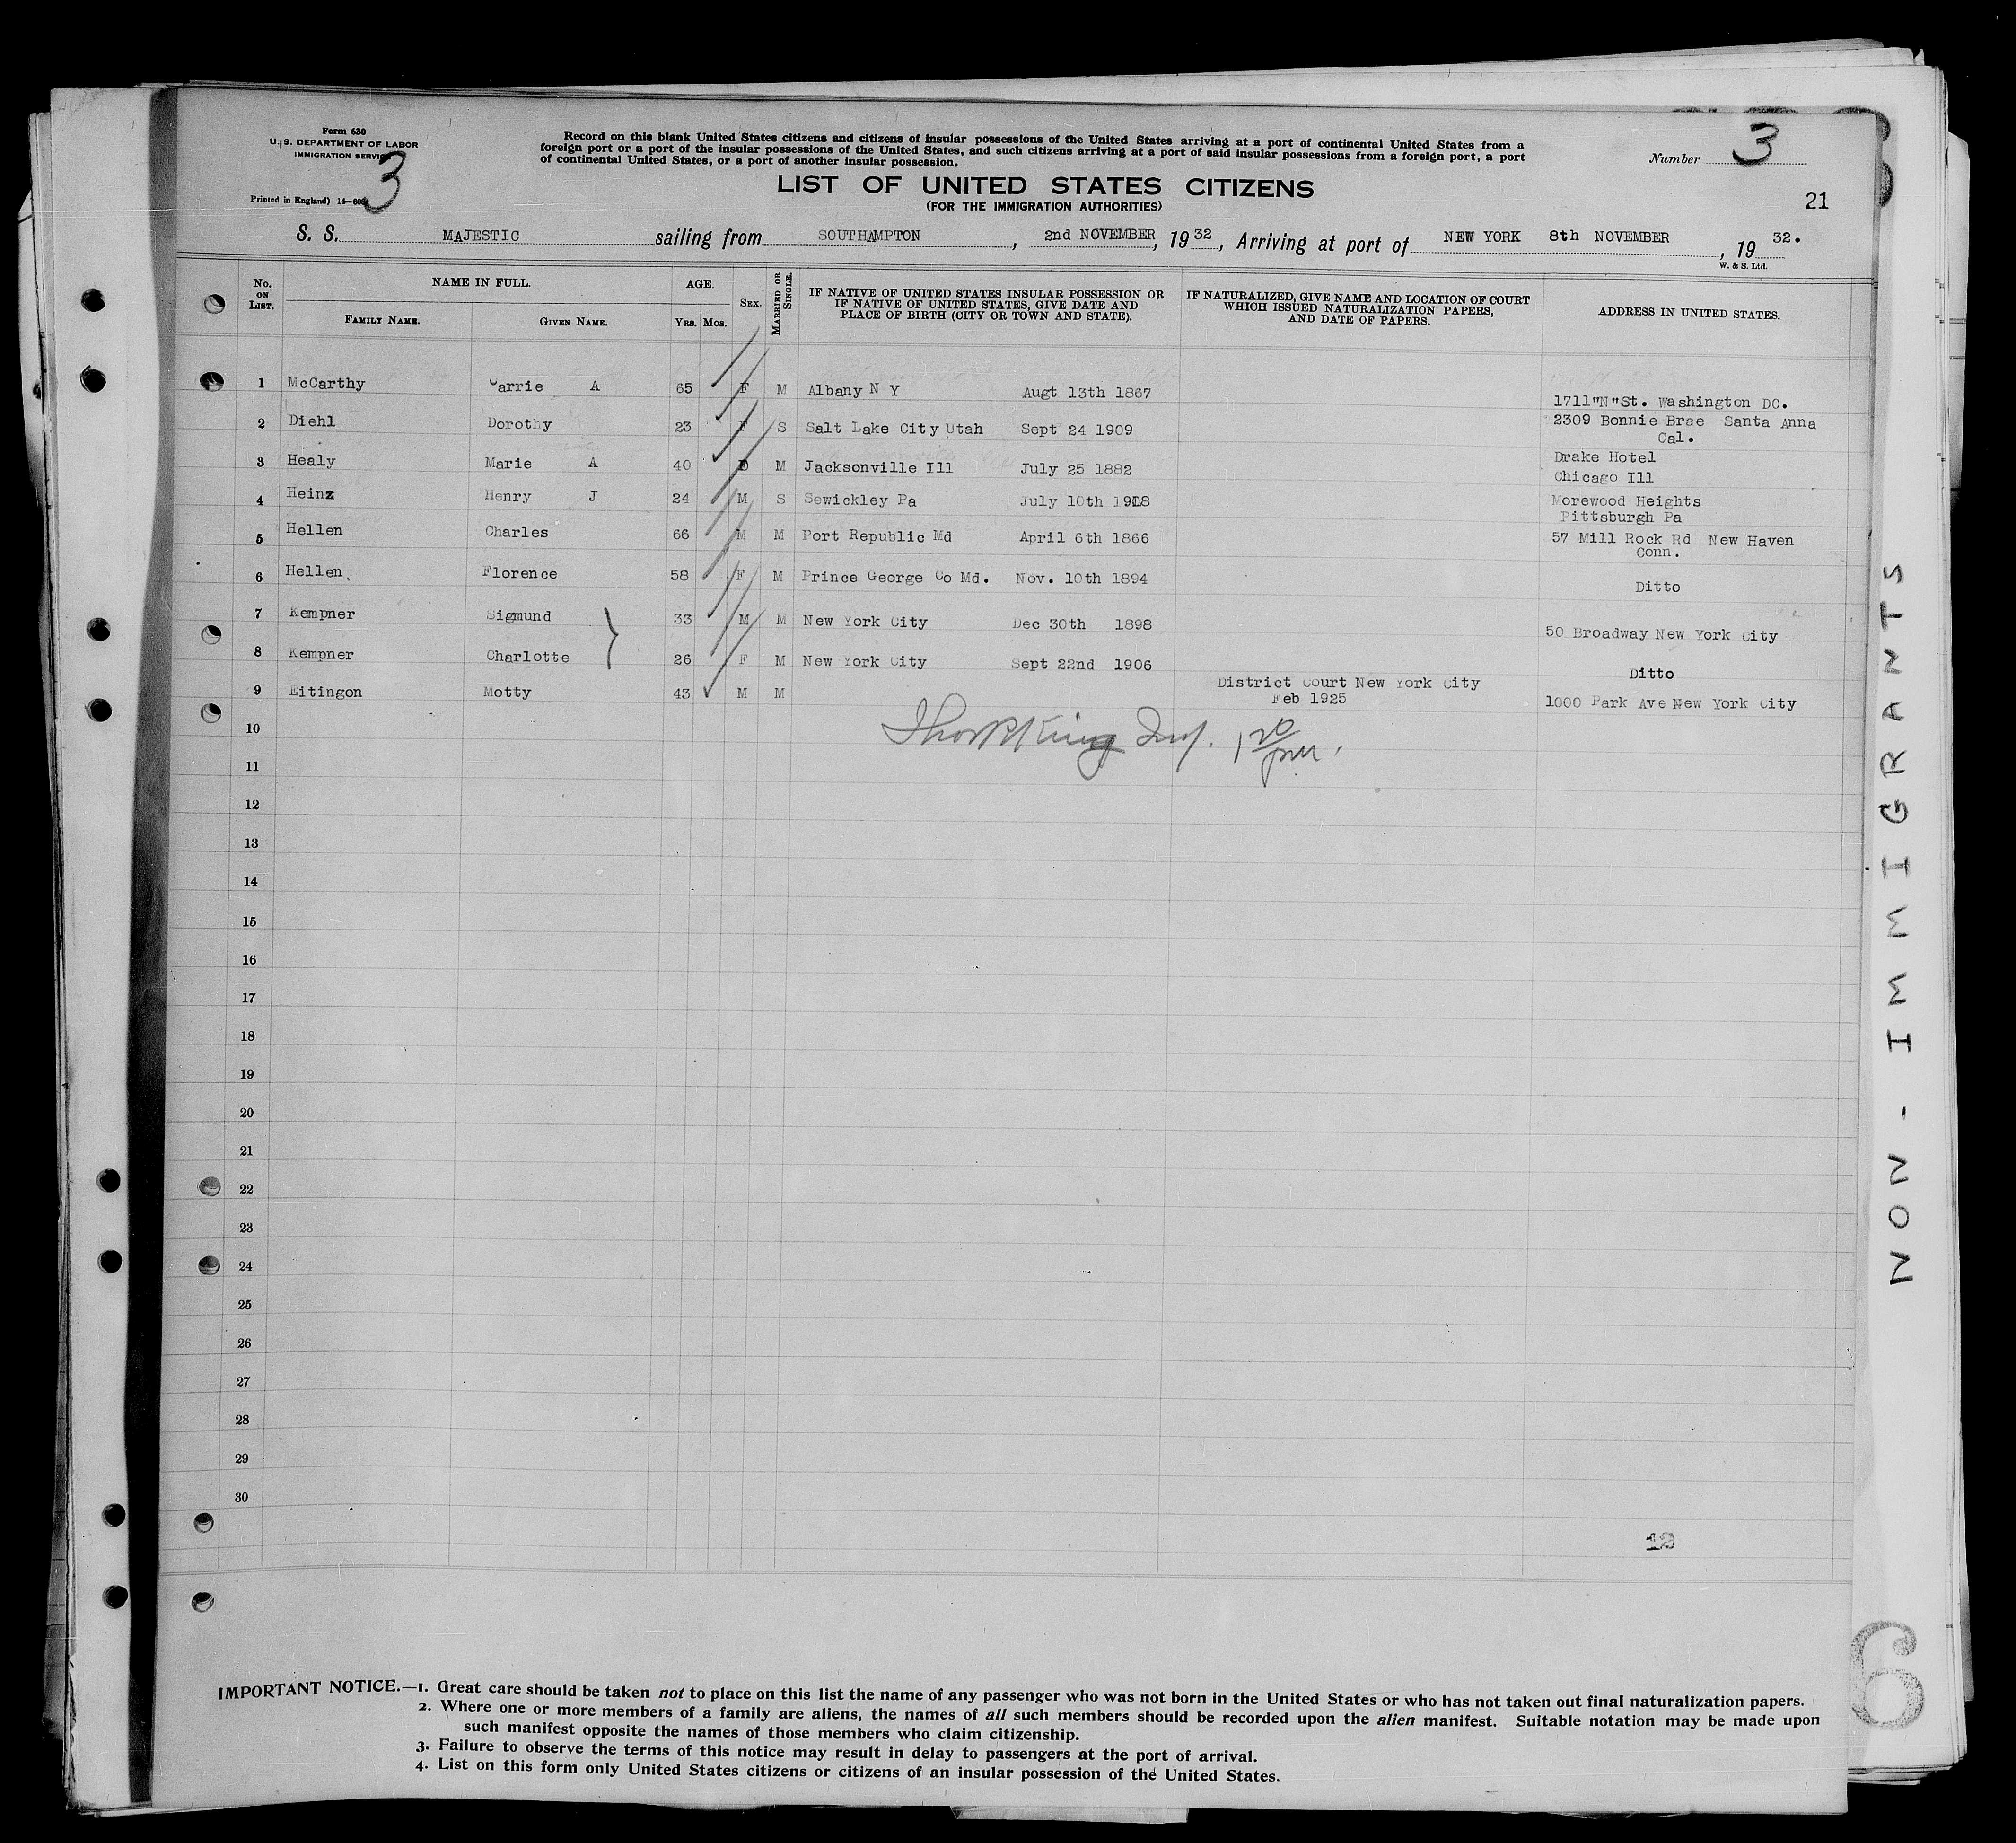 Form 630
U. S. DEPARTMENT OF LABOR
IMMIGRATION SERVICE
3
Printed in England) 14—608
Record on this blank United States citizens and citizens of insular possessions of the United States arriving at a port of continental United States from a
foreign port or a port of the insular possessions of the United States, and such citizens arriving at a port of said insular possessions from a foreign port, a port
of continental United States, or a port of another insular possession.
Number 3
LIST OF UNITED STATES CITIZENS
(FOR THE IMMIGRATION AUTHORITIES)
21
S. S. MAJESTIC sailing from SOUTHAMPTON, 2nd NOVEMBER, 1932, Arriving at port of NEW YORK 8th NOVEMBER, 19 32.
W. & S. Ltd.
No. ON LIST. NAME IN FULL. FAMILY NAME. GIVEN NAME. AGE. YRS. MOS. SEX. MARRIED OR SINGLE. IF NATIVE OF UNITED STATES INSULAR POSSESSION OR IF NATIVE OF UNITED STATES, GIVE DATE AND PLACE OF BIRTH (CITY OR TOWN AND STATE). IF NATURALIZED, GIVE NAME AND LOCATION OF COURT WHICH ISSUED NATURALIZATION PAPERS, AND DATE OF PAPERS. ADDRESS IN UNITED STATES.
1 McCarthy Carrie A 65 F M Albany N Y Augt 13th 1867 1711"N"St. Washington DC.
2 Diehl Dorothy 23 F S Salt Lake City Utah Sept 24 1909 2309 Bonnie Brae Santa Anna
Cal.
3 Healy Marie A 40 M Jacksonville Ill July 25 1882 Drake Hotel
Chicago Ill
4 Heinz Henry J 24 M S Sewickley Pa July 10th 1908 Morewood Heights
Pittsburgh Pa
5 Hellen Charles 66 M M Port Republic Md April 6th 1866 57 Mill Rock Rd New Haven
Conn.
6 Hellen, Florence 58 F M Prince George Co Md. Nov. 10th 1894 Ditto
7 Kempner Sigmund 33 M M New York City Dec 30th 1898 50 Broadway New York City
8 Kempner Charlotte 26 F M New York City Sept 22nd 1906 Ditto
9 Eitingon Motty 43 M M District Court New York City
Feb 1925 1000 Park Ave New York City
10
11
12
13
14
15
16
17
18
19
20
21
22
23
24
25
26
27
28
29
30
NON-IMMIGRANTS
6
IMPORTANT NOTICE.—1. Great care should be taken not to place on this list the name of any passenger who was not born in the United States or who has not taken out final naturalization papers.
2. Where one or more members of a family are aliens, the names of all such members should be recorded upon the alien manifest. Suitable notation may be made upon
such manifest opposite the names of those members who claim citizenship.
3. Failure to observe the terms of this notice may result in delay to passengers at the port of arrival.
4. List on this form only United States citizens or citizens of an insular possession of the United States.